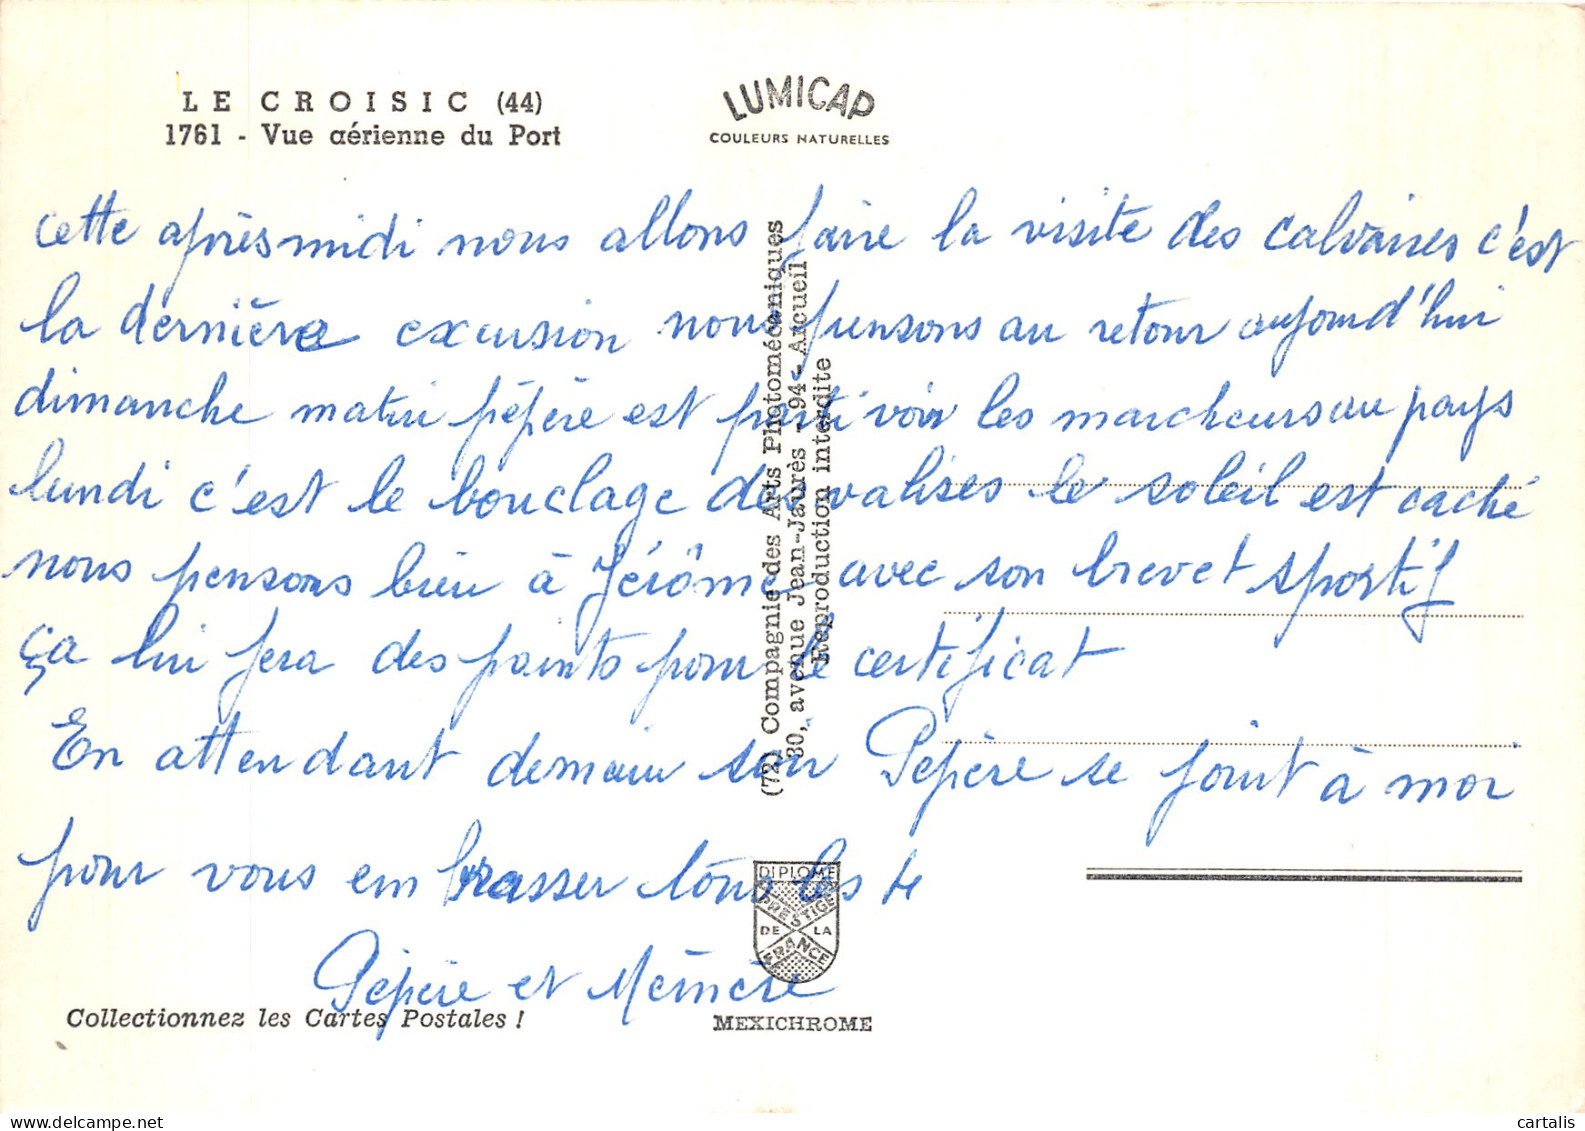 LE CROISIC (44)
1761 - Vue aérienne du Port
LUMICAP
COULEURS NATURELLES
cette après midi nous allons faire la visite des calvaires c'est
la dernière excursion nous pensons au retour aujourd'hui
dimanche matin pépère est parti voir les marcheurs au pays
lundi c'est le bouclage des valises le soleil est caché
nous pensons bien à Jérôme avec son brevet sportif
ça lui fera des points pour le certificat
En attendant demain soir Pépère se joint à moi
pour vous embrasser tous les 4
Pépère et Mémère
(72) Compagnie des Arts Photomécaniques
30, avenue Jean-Jaurès - 94 - Arcueil
Reproduction interdite
DIPLOME
PRESTIGE
DE LA
FRANCE
Collectionnez les Cartes Postales !
MEXICHROME
www.delcampe.net
cartalis